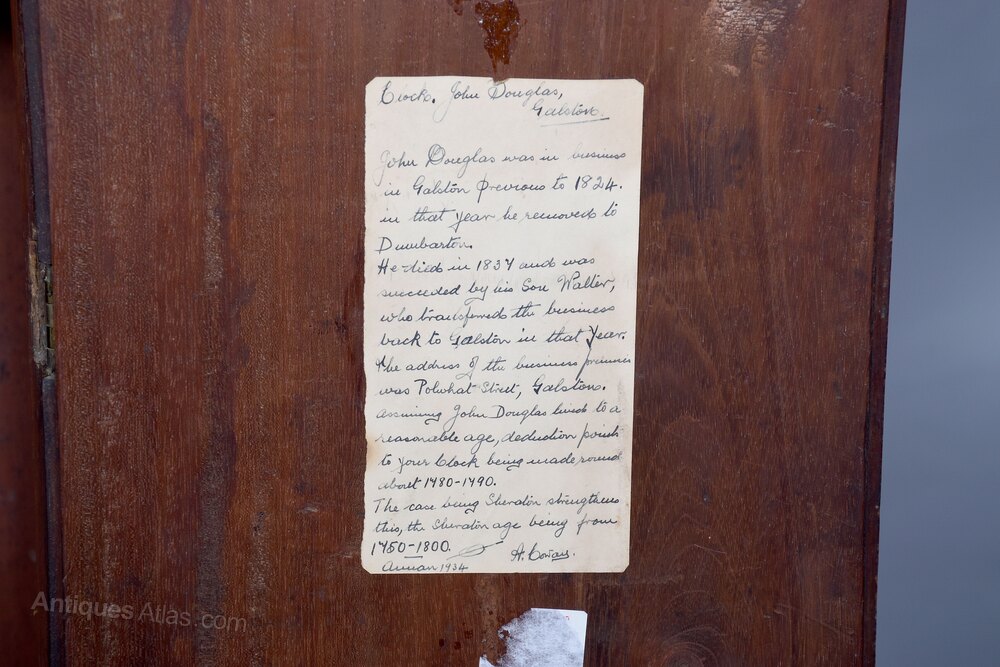 Clock. John Douglas,
Galston.
John Douglas was in business
in Galston previous to 1824.
in that year he removed to
Dumbarton.
He died in 1837 and was
succeeded by his Son Walter,
who transferred the business
back to Galston in that Year.
The address of the business premises
was Polwhat Street, Galston.
Assuming John Douglas lived to a
reasonable age, deduction points
to your Clock being made round
about 1780-1790.
The case being Sheraton strengthens
this, the Sheraton age being from
1750-1800.
A. Cowan.
Annan 1934
Antiques Atlas.com